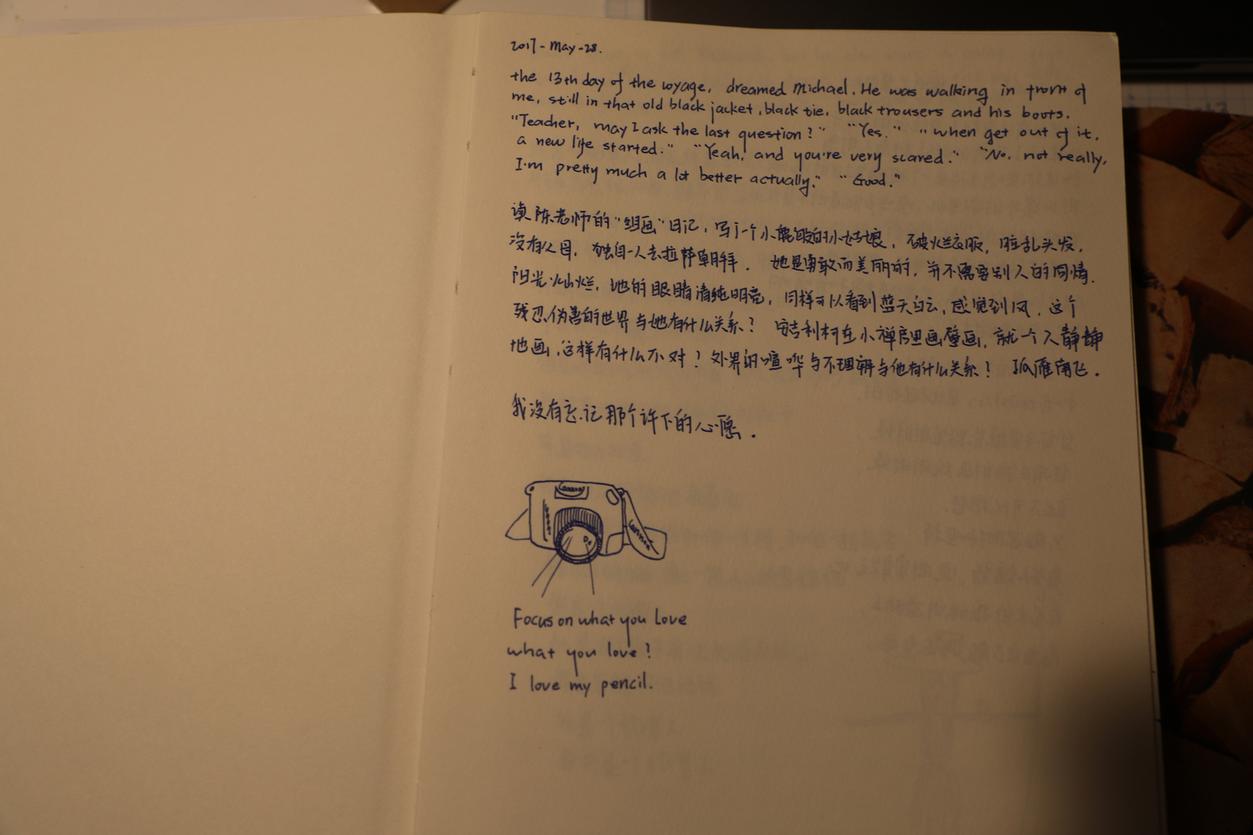 2017-May-28.
the 13th day of the voyage, dreamed Michael. He was walking in front of
me, still in that old black jacket, black tie, black trousers and his boots.
"Teacher, may I ask the last question?" "Yes." "when get out of it,
a new life started." "Yeah, and you're very scared." "No, not really,
I'm pretty much a lot better actually." "Good."
读陈老师的"组画"日记，写了一个小的小姑娘，破烂衣服，脏乱头发，
没有父母，独自一人去拉萨朝拜．她是勇敢而美丽的，并不需要别人的同情．
阳光灿烂，她的眼睛清纯明亮，同样可以看到蓝天白云，感觉到风．这个
残忍伪善的世界与她有什么关系？安吉利柯在小禅房里画壁画，就一个人静静
地画，这样有什么不对？外界的喧哗与不理解与他有什么关系？孤雁南飞．
我没有忘记那个许下的心愿．
Focus on what you Love
what you love?
I love my pencil.